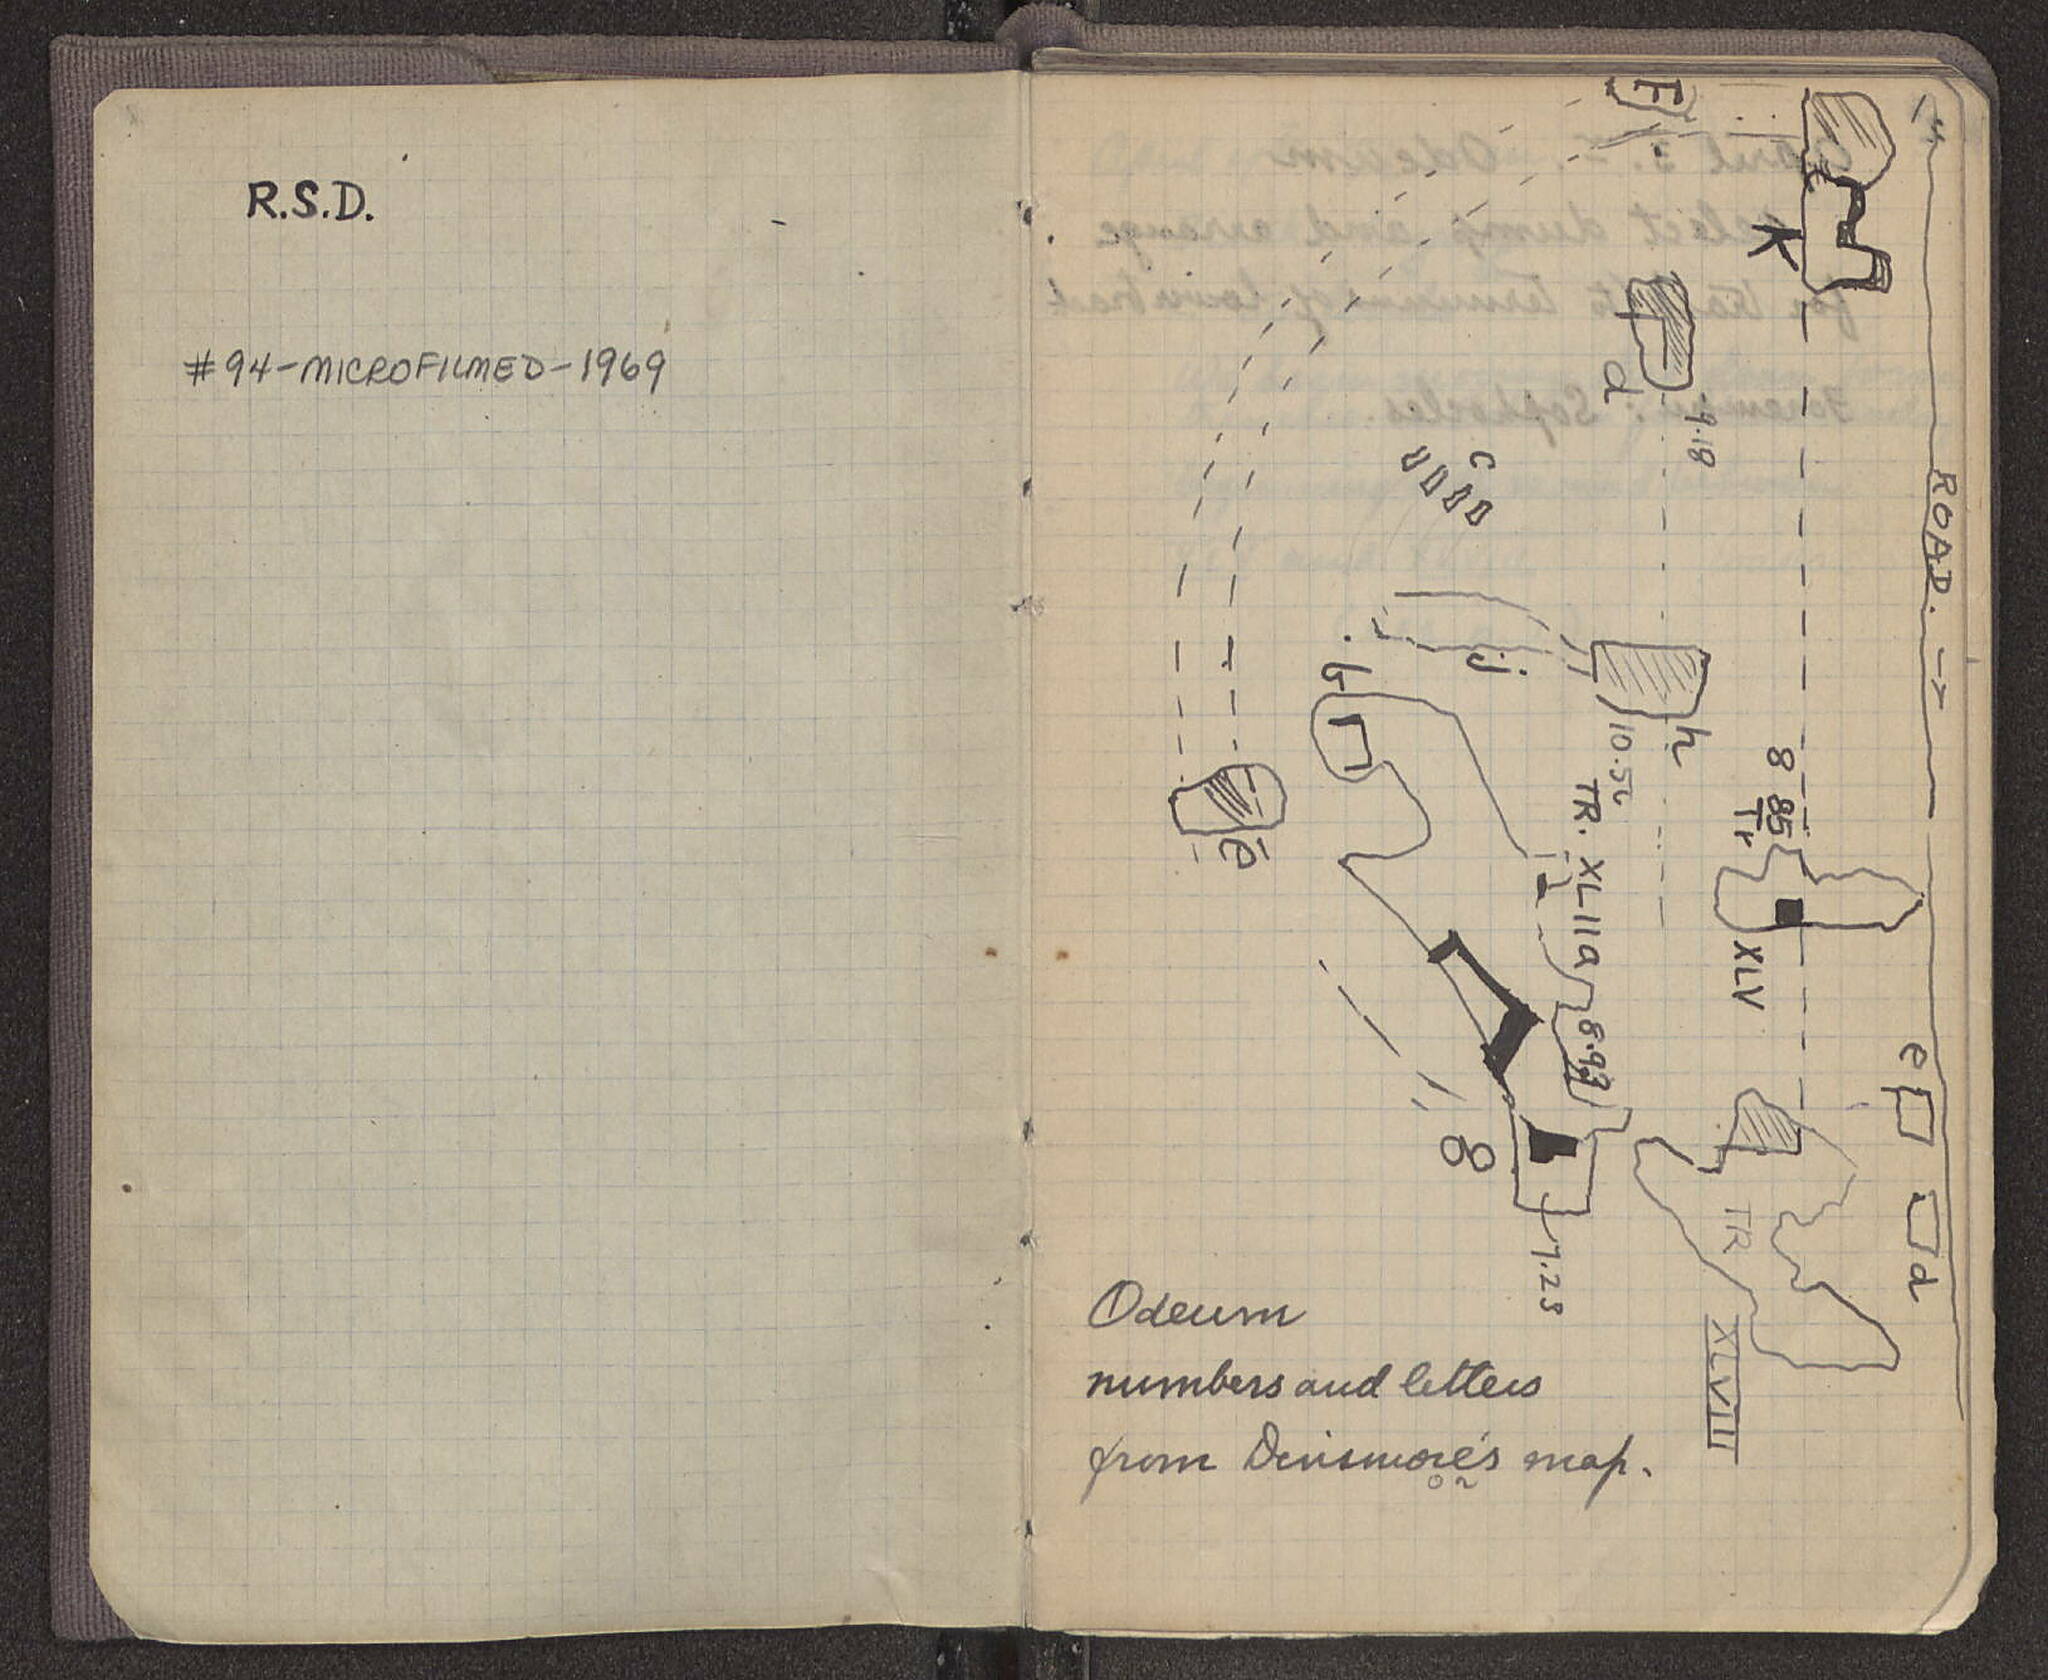 R.S.D.
#94-MICROFILMED-1969
F
K
d
9.18
c
ROAD. →
j
b
h
10.56
TR. XLIIa
8.93
8 85
Tr
XLV
e
e
d
g
7.28
TR
XLVIII
Odeum
numbers and letters
from Dinsmore's map.